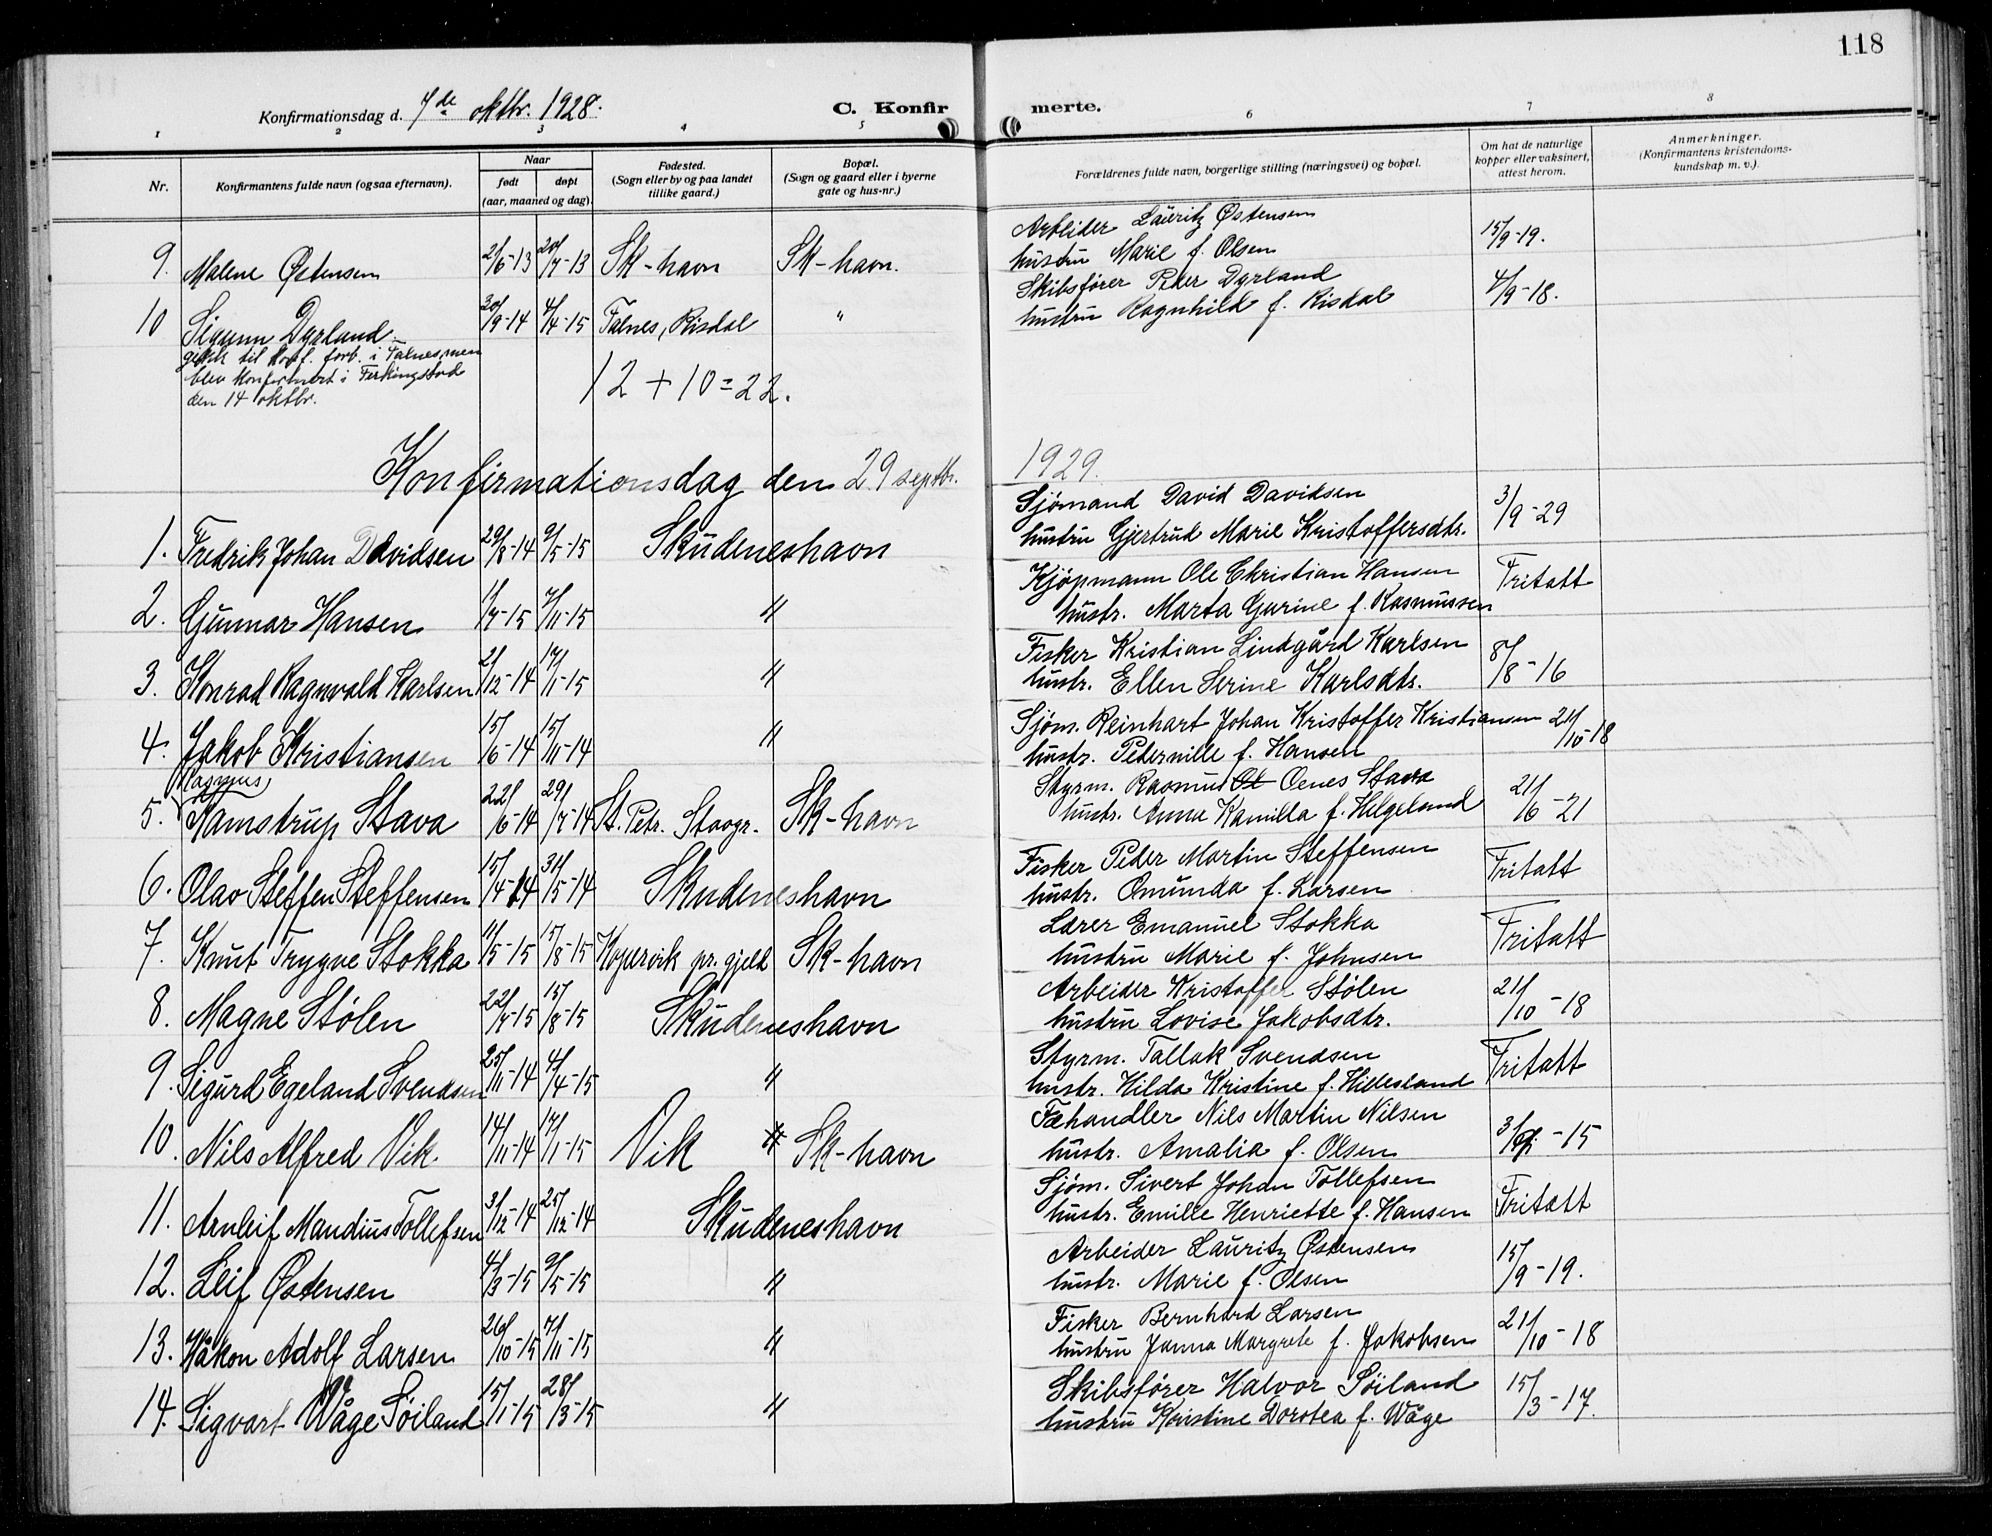 118
Konfirmationsdag d. 7de oktbr. 1928.
C. Konfirmerte.
1 2 3 4 5 6 7 8
Nr.
Konfirmantens fulde navn (ogsaa efternavn).
Naar
født døpt
(aar, maaned og dag).
Fødested.
(Sogn eller by og paa landet
tillike gaard.)
Bopæl.
(Sogn og gaard eller i byerne
gate og hus-nr.)
Forældrenes fulde navn, borgerlige stilling (næringsvei) og bopæl.
Om hat de naturlige
kopper eller vaksinert,
attest herom.
Anmerkninger.
(Konfirmantens kristendoms-
kundskap m. v.).
9. Malene Østensen 2/6-13 20/7-13 Sk-havn Sk-havn. Arbeider Lauritz Østensen 15/9-19.
hustru Marie f. Olsen
10 Sigunn Dyrland 30/9-14 4/4-15 Falnes, Risdal " Skibsfører Peder Dyrland 4/9-18.
hustru Ragnhild f. Risdal
gikk til konf. forb. i Falnes, men
blev konfirmert i Ferkingstad
den 14 oktbr.
12 + 10 = 22.
Konfirmationsdag den 29 septbr. 1929.
1. Fredrik Johan Davidsen 29/8-14 9/5-15 Skudeneshavn Sjömand David Davidsen 3/9-29
hustru Gjertrud Marie Kristoffersdtr.
2. Gunnar Hansen 1/7-15 7/11-15 " Kjöpmann Ole Christian Hansen Fritatt
hustr. Marta Gurine f. Rasmussen
3. Konrad Ragnvald Karlsen 2/12-14 17/1-15 " Fisker Kristian Lindgård Karlsen 8/8-16
hustr. Ellen Serine Karlsdtr.
4. Jakob Kristiansen 15/6-14 15/11-14 " Sjöm. Reinhart Johan Kristoffer Kristiansen 21/10-18
hustr. Pedernille f. Hansen
5. Rasmus Kamstrup Stava 22/6-14 29/7-14 St. Petr. Stavgr. Sk-havn Styrm. Rasmus Oenes Stava 21/6-21
hustr. Anna Kamilla f. Helgeland
6. Olav Steffen Steffensen 15/4-14 31/5-14 Skudeneshavn Fisker Peder Martin Steffensen Fritatt
hustr. Omunda f. Larsen
7. Knut Trygve Stokka 11/5-15 15/8-15 Kopervik pr.gjeld Sk-havn Lærer Emanuel Stokka Fritatt
hustru Marie f. Johnsen
8. Magne Stølen 22/7-15 15/8-15 Skudeneshavn Arbeider Kristoffer Stølen 21/10-18
hustru Lovise Jakobsdtr.
9. Sigurd Egeland Svendsen 25/11-14 4/4-15 " Styrm. Tallak Svendsen Fritatt
hustr. Hilda Kristine f. Hillesland
10. Nils Alfred Vik. 14/11-14 17/1-15 Vik Sk-havn Fæhandler Nils Martin Nilsen
hustr. Amalia f. Olsen
11. Arnleif Mandius Tollefsen 3/12-14 25/12-14 Skudeneshavn Sjöm. Sivert Johan Tollefsen Fritatt
hustr. Emilie Henriette f. Hansen
12. Leif Østensen 4/3-15 9/5-15 " Arbeider Lauritz Østensen 15/9-19.
hustr. Marie f. Olsen
13. Håkon Adolf Larsen 26/10-15 7/11-15 " Fisker Bernhard Larsen 21/10-18
hustru Janna Margrete f. Jakobsen
14. Sigvart Våge Söiland 15/1-15 28/3-15 " Skibsfører Halvor Söiland 15/3-17.
hustru Kristine Dorotea f. Våge